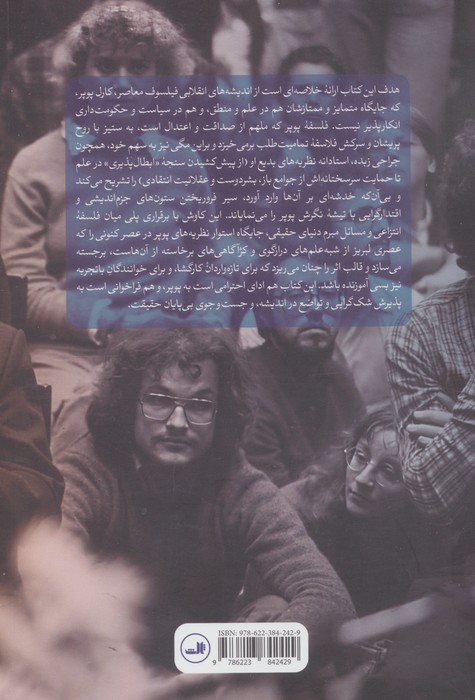 هدف این کتاب ارائهٔ خلاصه‌ای است از اندیشه‌های انقلابی فیلسوف معاصر، کارل پوپر،
که جایگاه متمایز و ممتازشان هم در علم و منطق، و هم در سیاست و حکومت‌داری
انکارپذیر نیست. فلسفهٔ پوپر که ملهم از صداقت و اعتدال است، به ستیز با روح
پریشان و سرکش فلاسفهٔ تمامیت‌طلب برمی‌خیزد و براین مگی نیز به سهم خود، همچون
جراحی زبده، استادانه نظریه‌های بدیع او (از پیش‌کشیدن سنجهٔ «ابطال‌پذیری» در علم
تا حمایت سرسختانه‌اش از جوامع باز، بشردوست و عقلانیت انتقادی) را تشریح می‌کند
و بی‌آن‌که خدشه‌ای بر آن‌ها وارد آورد، سیر فروریختن ستون‌های جزم‌اندیشی و
اقتدارگرایی با تیشهٔ نگرش پوپر را می‌نمایاند. این کاوش با برقراری پلی میان فلسفهٔ
انتزاعی و مسائل مبرم دنیای حقیقی، جایگاه استوار نظریه‌های پوپر در عصر کنونی را که
عصری لبریز از شبه‌علم‌های درازگوی و کژآگاهی‌های برخاسته از آن‌هاست، برجسته
می‌سازد و قالب اثر را چنان می‌ریزد که برای تازه‌واردان کارگشا، و برای خوانندگان باتجربه
نیز بسی آموزنده باشد. این کتاب هم ادای احترامی است به پوپر، و هم فراخوانی است به
پذیرش شک‌گرایی و تواضع در اندیشه، و جست‌وجوی بی‌پایان حقیقت.
ISBN: 978-622-384-242-9
9 786223 842429
ثالث